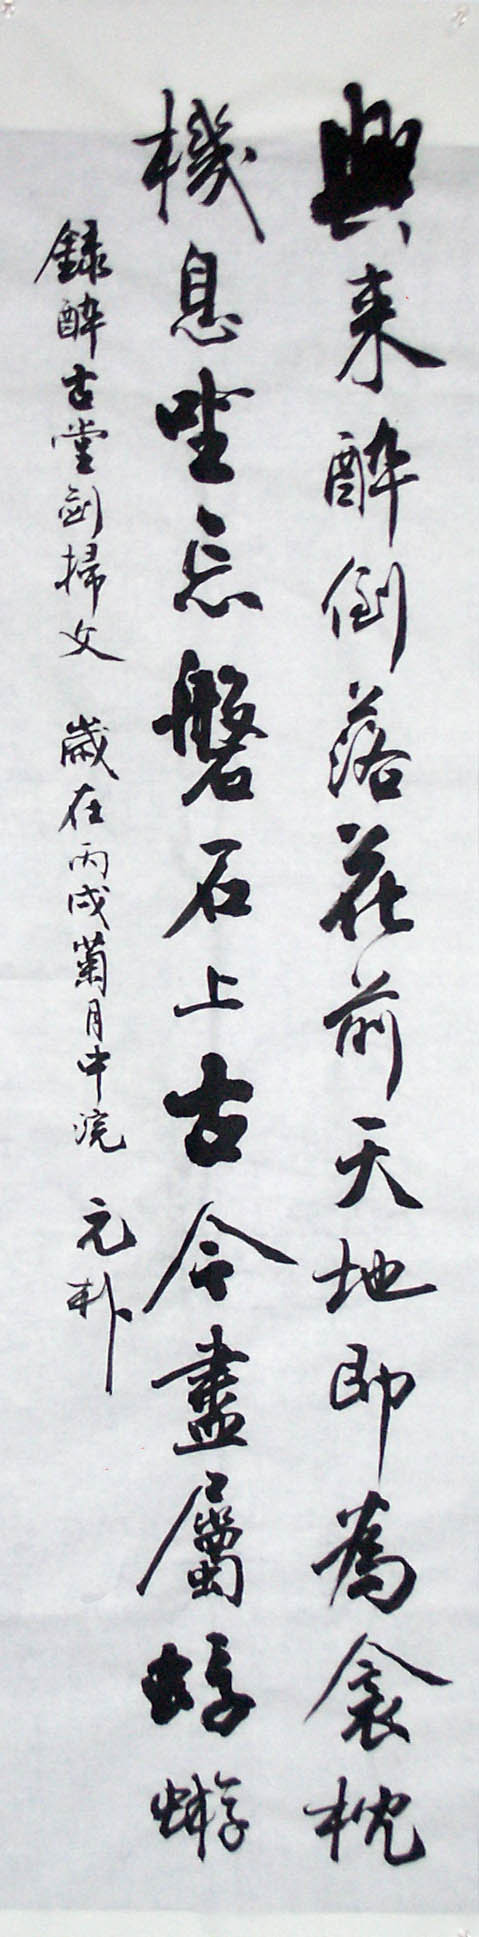 興来醉倒落花前天地即為衾枕
機息坐忘磐石上古今盡屬蜉蝣
録醉古堂劍掃文 歲在丙戌菊月中浣 元朴